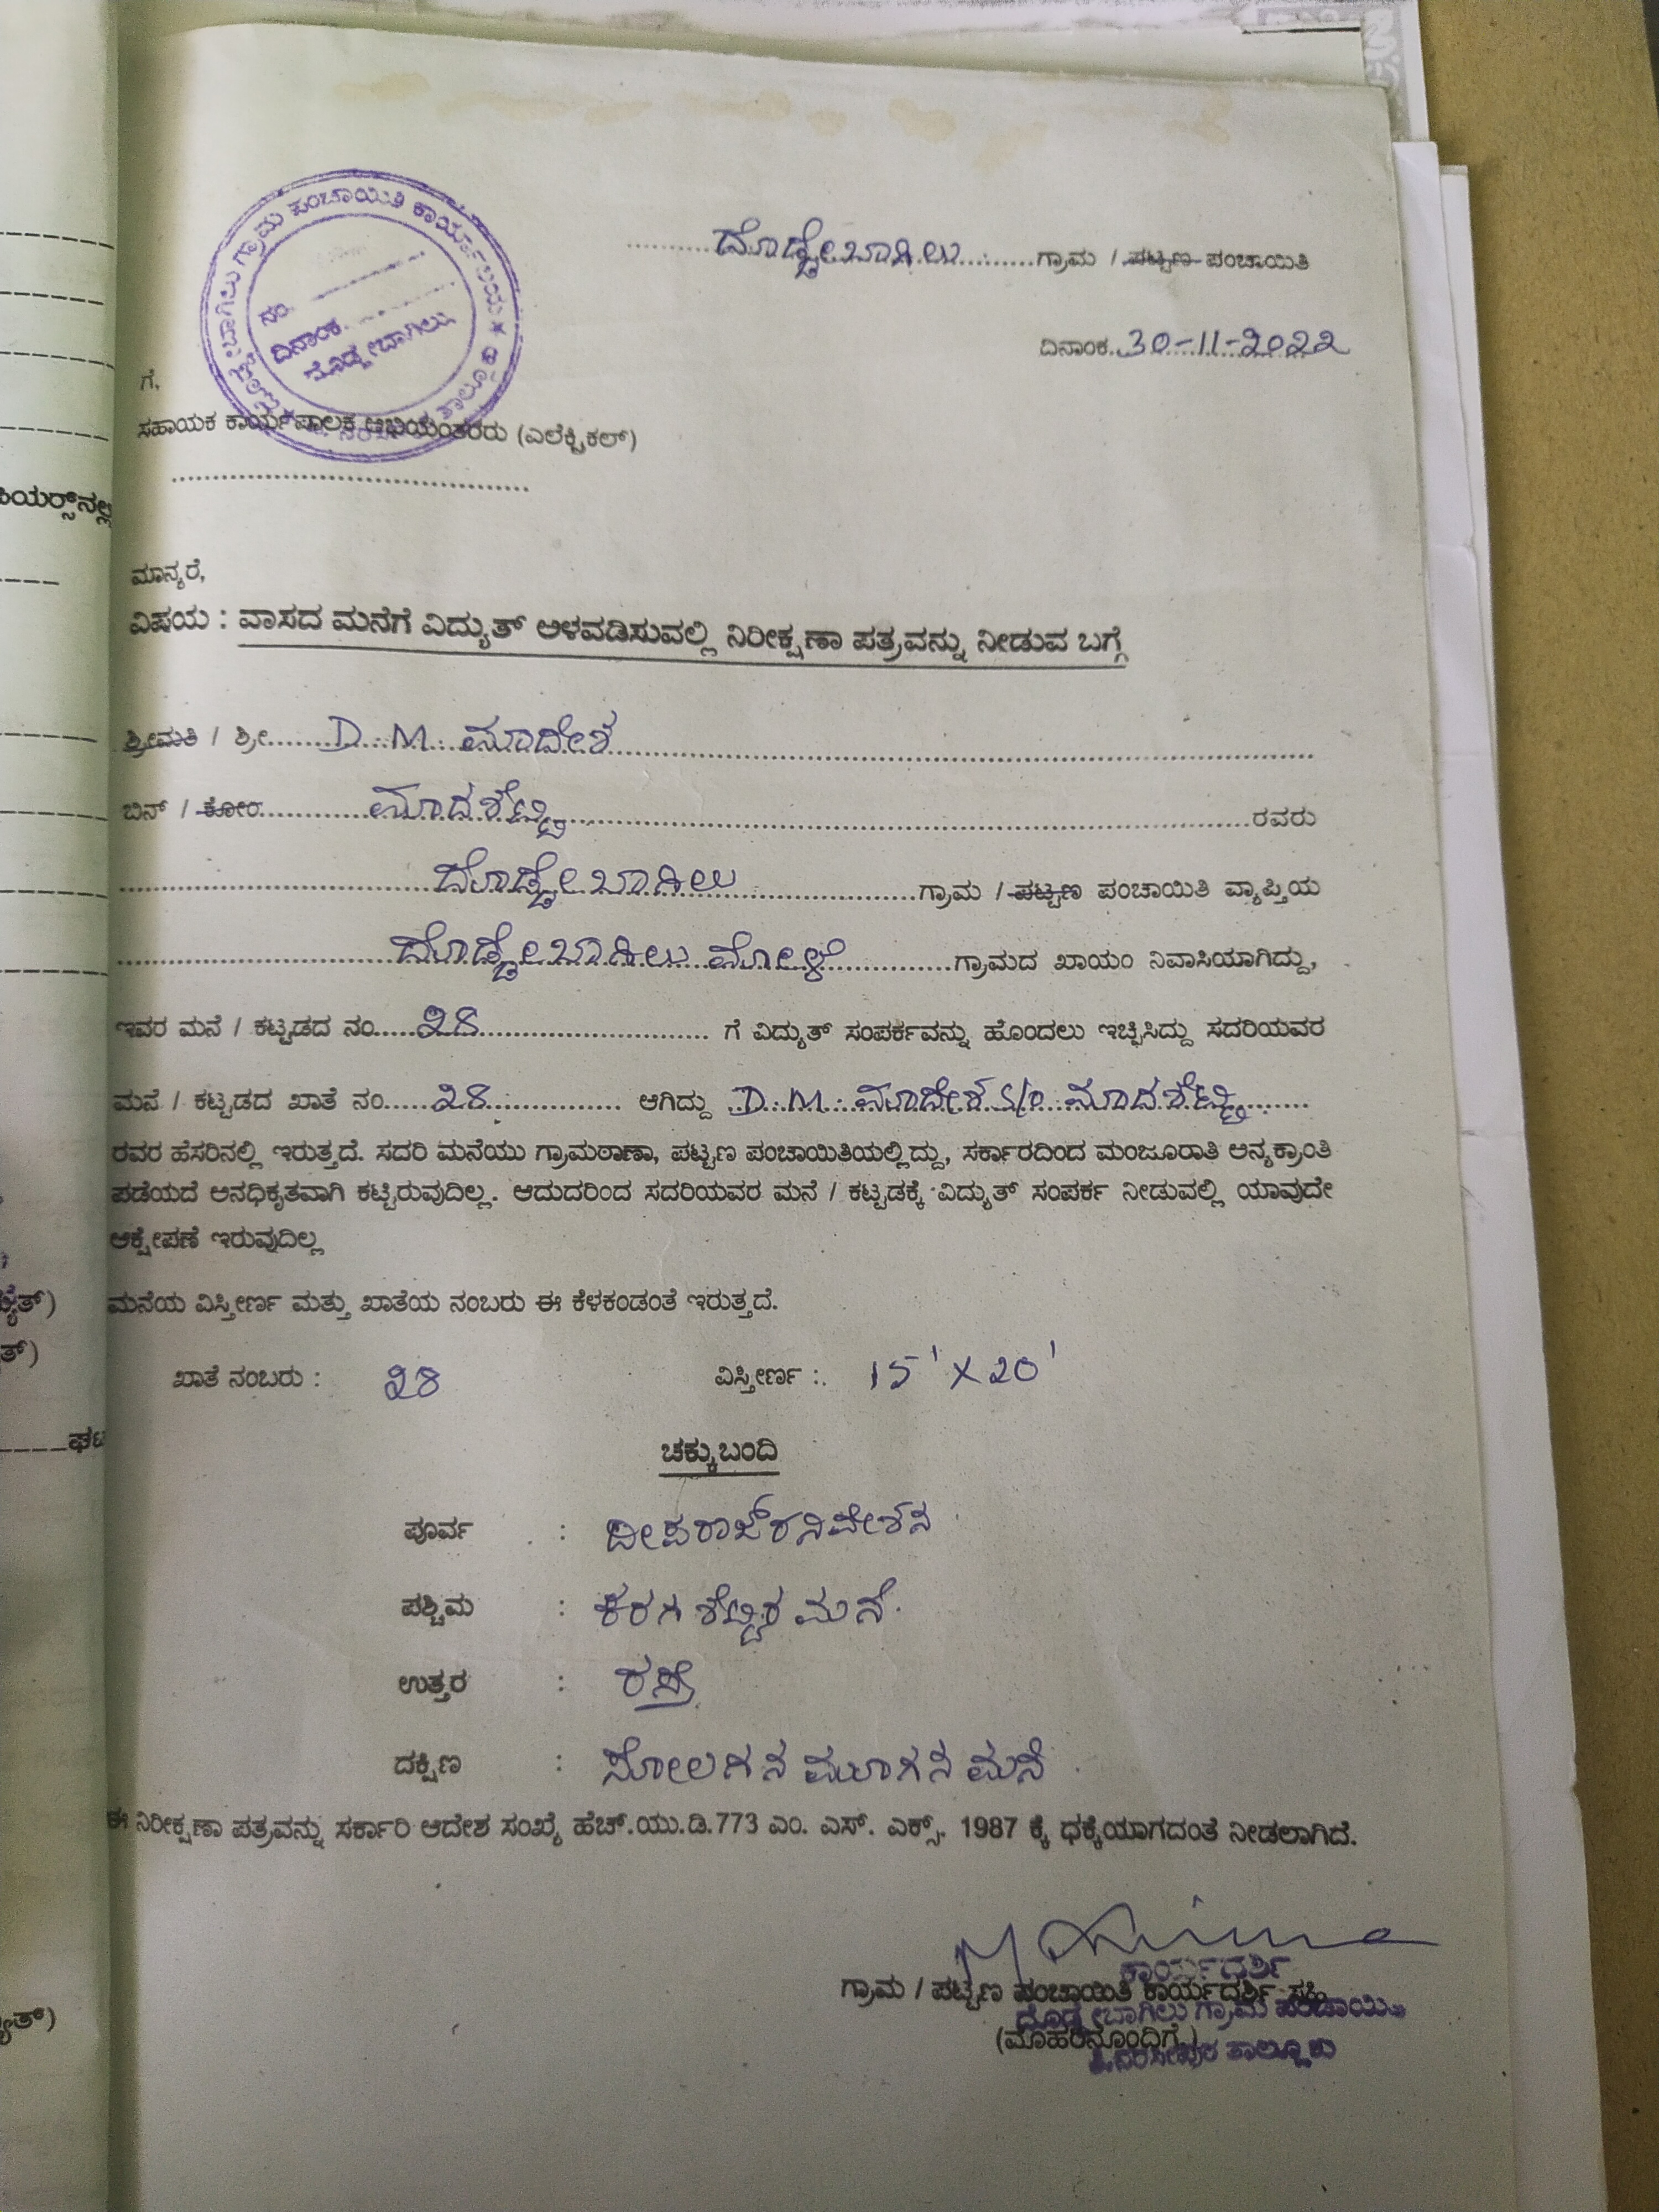 ದೊಡ್ಡೇಬಾಗಿಲು ಗ್ರಾಮ / ಪಟ್ಟಣ ಪಂಚಾಯಿತಿ
ದಿನಾಂಕ 30-11-2022
ಗ್ರಾಮ ಪಂಚಾಯಿತಿ ಕಾರ್ಯಾಲಯ
ನಂ.
ದಿನಾಂಕ.
ದೊಡ್ಡೇಬಾಗಿಲು
ಗೆ,
ಸಹಾಯಕ ಕಾರ್ಯಪಾಲಕ ಅಭಿಯಂತರರು (ಎಲೆಕ್ಟ್ರಿಕಲ್)
ಮಾನ್ಯರೆ,
ವಿಷಯ : ವಾಸದ ಮನೆಗೆ ವಿದ್ಯುತ್ ಅಳವಡಿಸುವಲ್ಲಿ ನಿರೀಕ್ಷಣಾ ಪತ್ರವನ್ನು ನೀಡುವ ಬಗ್ಗೆ
ಶ್ರೀಮತಿ / ಶ್ರೀ D.M. ಮಾದೇಶ
ಬಿನ್ / ಕೋಂ ಮಾದಶೆಟ್ಟಿ ರವರು
ದೊಡ್ಡೇಬಾಗಿಲು ಗ್ರಾಮ / ಪಟ್ಟಣ ಪಂಚಾಯಿತಿ ವ್ಯಾಪ್ತಿಯ
ದೊಡ್ಡೇಬಾಗಿಲು ಮೋಳೆ ಗ್ರಾಮದ ಖಾಯಂ ನಿವಾಸಿಯಾಗಿದ್ದು,
ಇವರ ಮನೆ / ಕಟ್ಟಡದ ನಂ 28 ಗೆ ವಿದ್ಯುತ್ ಸಂಪರ್ಕವನ್ನು ಹೊಂದಲು ಇಚ್ಛಿಸಿದ್ದು ಸದರಿಯವರ
ಮನೆ / ಕಟ್ಟಡದ ಖಾತೆ ನಂ 28 ಆಗಿದ್ದು D.M. ಮಾದೇಶ S/o ಮಾದಶೆಟ್ಟಿ
ರವರ ಹೆಸರಿನಲ್ಲಿ ಇರುತ್ತದೆ. ಸದರಿ ಮನೆಯು ಗ್ರಾಮಠಾಣಾ, ಪಟ್ಟಣ ಪಂಚಾಯಿತಿಯಲ್ಲಿದ್ದು, ಸರ್ಕಾರದಿಂದ ಮಂಜೂರಾತಿ ಅನ್ಯಕ್ರಾಂತಿ
ಪಡೆಯದೆ ಅನಧಿಕೃತವಾಗಿ ಕಟ್ಟಿರುವುದಿಲ್ಲ. ಆದುದರಿಂದ ಸದರಿಯವರ ಮನೆ / ಕಟ್ಟಡಕ್ಕೆ ವಿದ್ಯುತ್ ಸಂಪರ್ಕ ನೀಡುವಲ್ಲಿ ಯಾವುದೇ
ಆಕ್ಷೇಪಣೆ ಇರುವುದಿಲ್ಲ
ಮನೆಯ ವಿಸ್ತೀರ್ಣ ಮತ್ತು ಖಾತೆಯ ನಂಬರು ಈ ಕೆಳಕಂಡಂತೆ ಇರುತ್ತದೆ.
ಖಾತೆ ನಂಬರು : 28 ವಿಸ್ತೀರ್ಣ : 15' X 20'
ಚಕ್ಕುಬಂದಿ
ಪೂರ್ವ : ದೀಪರಾಜ್‌ರ ನಿವೇಶನ
ಪಶ್ಚಿಮ : ಕರಗಶೆಟ್ಟಿರ ಮನೆ.
ಉತ್ತರ : ರಸ್ತೆ
ದಕ್ಷಿಣ : ಸೋಲಗನ ಮಾಗನ ಮನೆ
ಈ ನಿರೀಕ್ಷಣಾ ಪತ್ರವನ್ನು ಸರ್ಕಾರಿ ಆದೇಶ ಸಂಖ್ಯೆ ಹೆಚ್.ಯು.ಡಿ.773 ಎಂ. ಎಸ್. ಎಕ್ಸ್. 1987 ಕ್ಕೆ ಧಕ್ಕೆಯಾಗದಂತೆ ನೀಡಲಾಗಿದೆ.
ಕಾರ್ಯದರ್ಶಿ
ಗ್ರಾಮ / ಪಟ್ಟಣ ಪಂಚಾಯಿತಿ ಕಾರ್ಯದರ್ಶಿ ಸಹಿ
ದೊಡ್ಡೇಬಾಗಿಲು ಗ್ರಾಮ ಪಂಚಾಯಿತಿ
(ಮೊಹರಿನೊಂದಿಗೆ)
ತಿ.ನರಸೀಪುರ ತಾಲ್ಲೂಕು